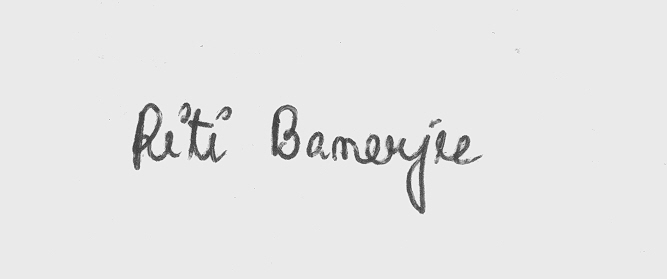 Riti Banerjee